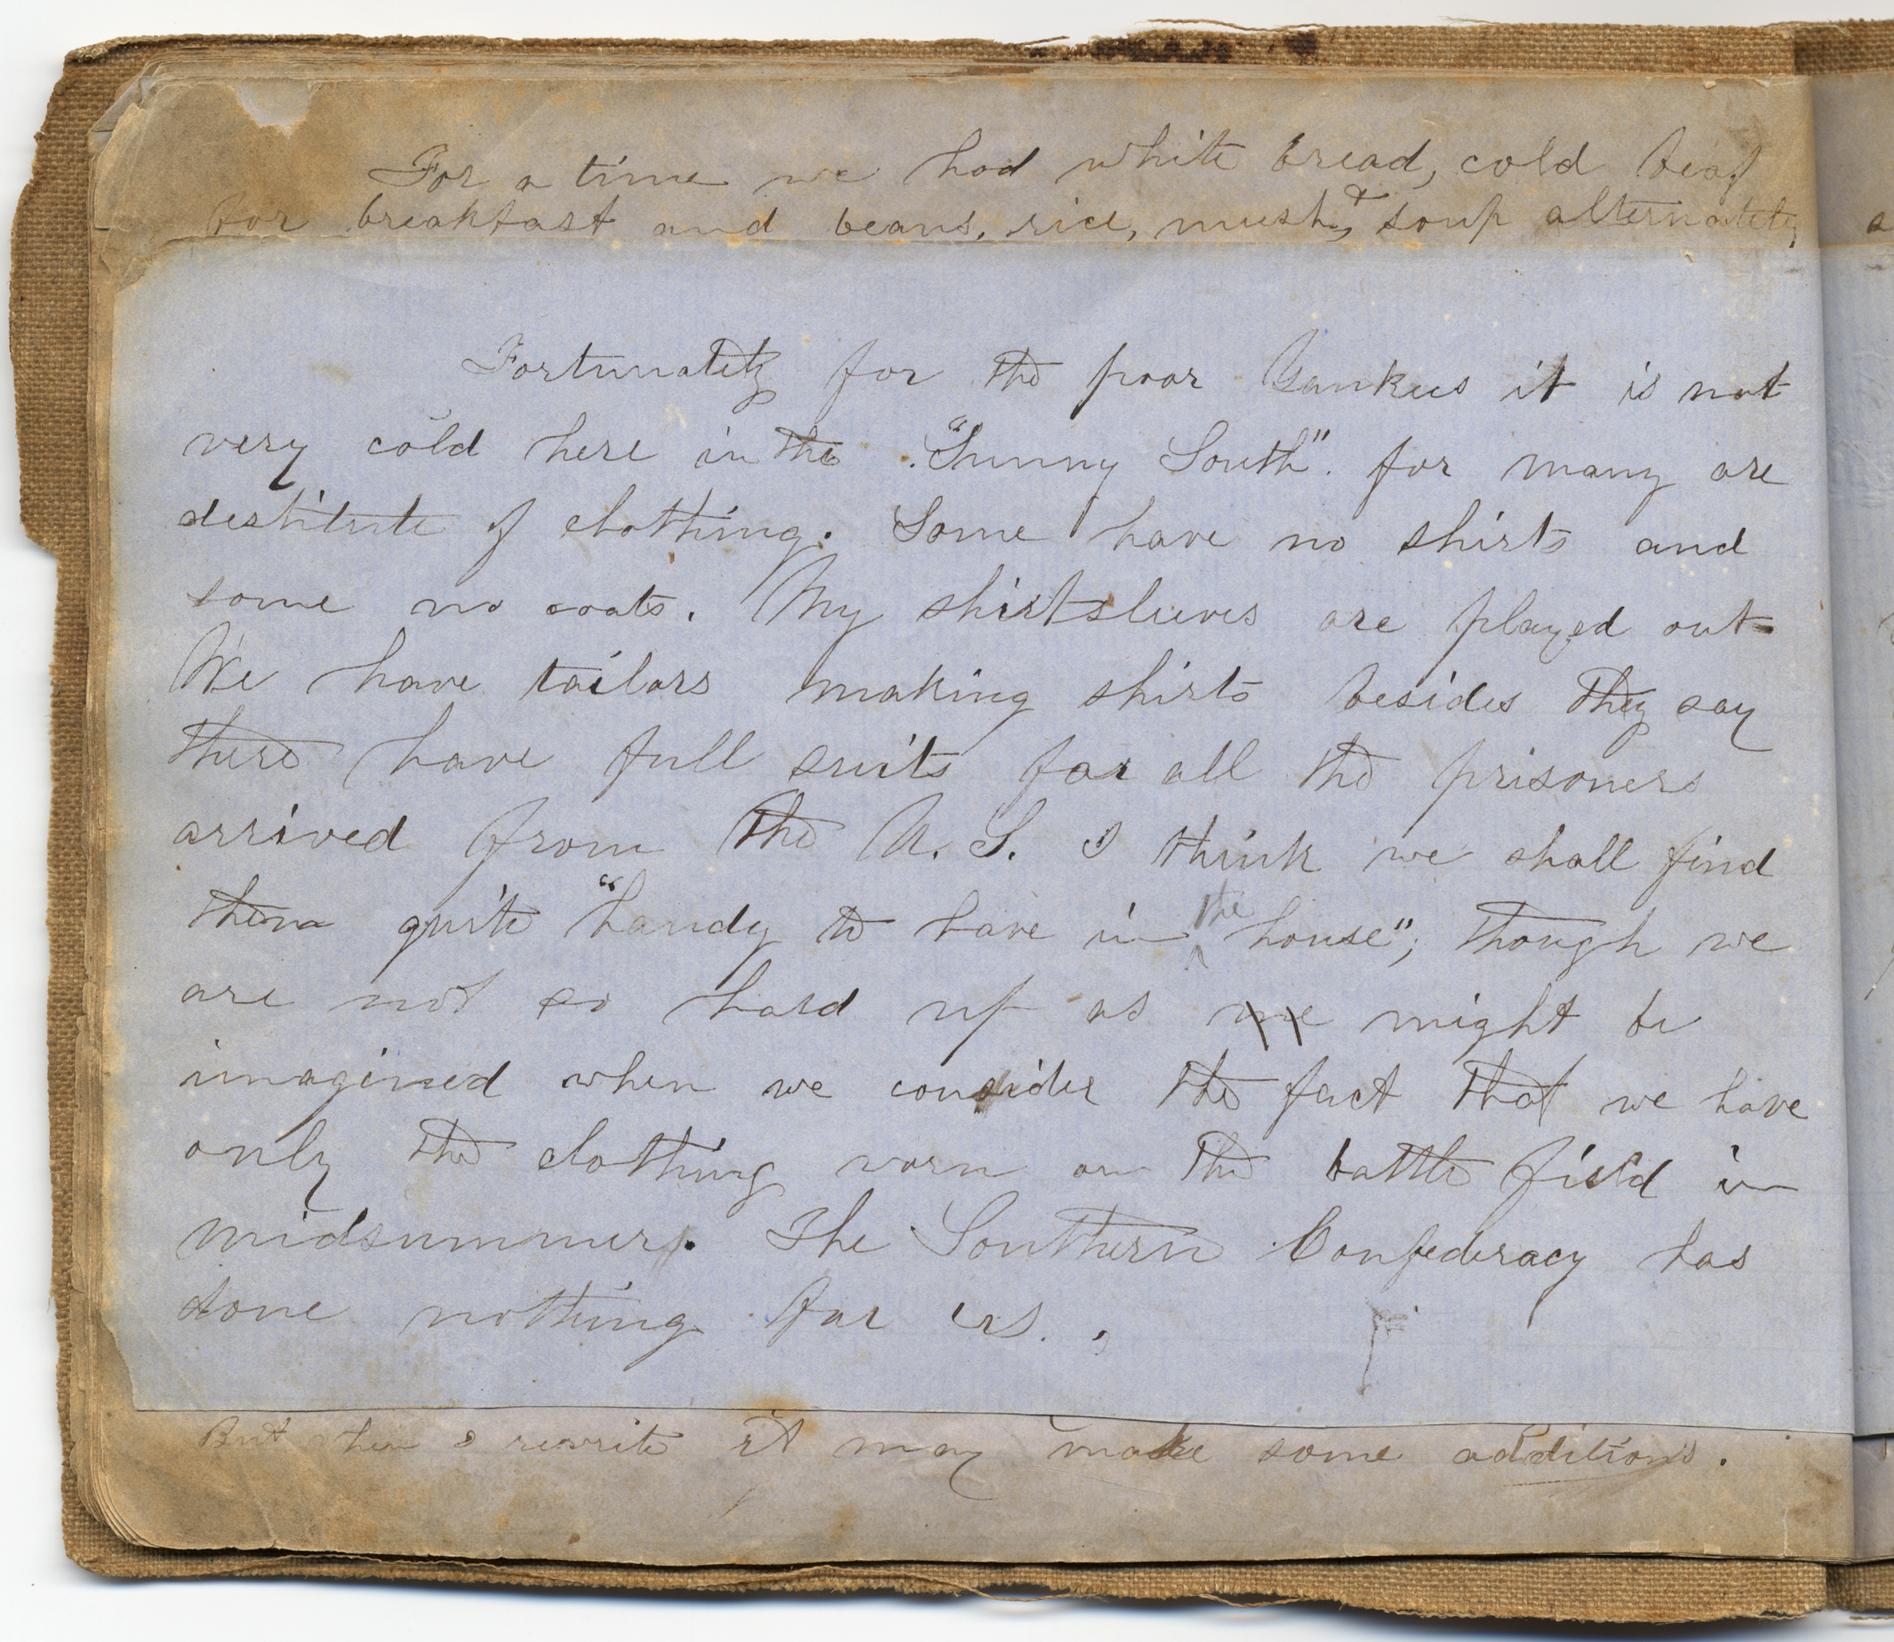 For a time we had white bread, cold beaf
for breakfast and beans, rice, mush, & soup alternately,
Fortunately for the poor Yankees it is not
very cold here in the "Sunny South". for many are
destitute of clothing. Some have no shirts and
some no coats. My shirtsleeves are played out
We have tailors making shirts besides they say
there have full suits for all the prisoners
arrived from the U. S. I think we shall find
them quite "handy to have in the house"; though we
are not so hard up as we might be
imagined when we consider the fact that we have
only the clothing worn on the battle field in
midsummer. The Southern Confederacy has
done nothing for us.
But when I rewrite it may make some additions.